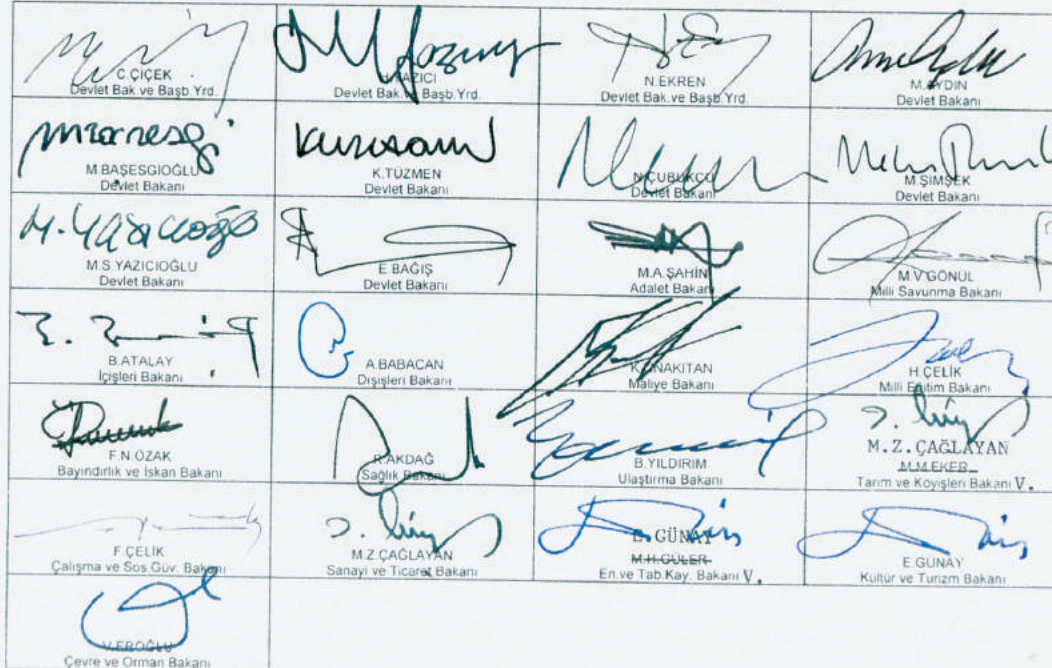 C.ÇİÇEK
Devlet Bak.ve Başb.Yrd.
H.YAZICI
Devlet Bak.ve Başb.Yrd.
N.EKREN
Devlet Bak.ve Başb.Yrd.
M.AYDIN
Devlet Bakanı
M.BAŞESGİOĞLU
Devlet Bakanı
K.TÜZMEN
Devlet Bakanı
N.ÇUBUKÇU
Devlet Bakanı
M.ŞİMŞEK
Devlet Bakanı
M.Yazıcıoğlu
M.S.YAZICIOĞLU
Devlet Bakanı
E.BAĞIŞ
Devlet Bakanı
M.A.ŞAHİN
Adalet Bakanı
M.V.GÖNÜL
Milli Savunma Bakanı
B.ATALAY
İçişleri Bakanı
A.BABACAN
Dışişleri Bakanı
K.UNAKITAN
Maliye Bakanı
H.ÇELİK
Milli Eğitim Bakanı
F.N.ÖZAK
Bayındırlık ve İskan Bakanı
R.AKDAĞ
Sağlık Bakanı
B.YILDIRIM
Ulaştırma Bakanı
M.Z.ÇAĞLAYAN
M.M.EKER
Tarım ve Köyişleri Bakanı V.
F.ÇELİK
Çalışma ve Sos.Güv. Bakanı
M.Z.ÇAĞLAYAN
Sanayi ve Ticaret Bakanı
E.GÜNAY
M.H.GÜLER
En.ve Tab.Kay. Bakanı V.
E.GÜNAY
Kültür ve Turizm Bakanı
V.EROĞLU
Çevre ve Orman Bakanı